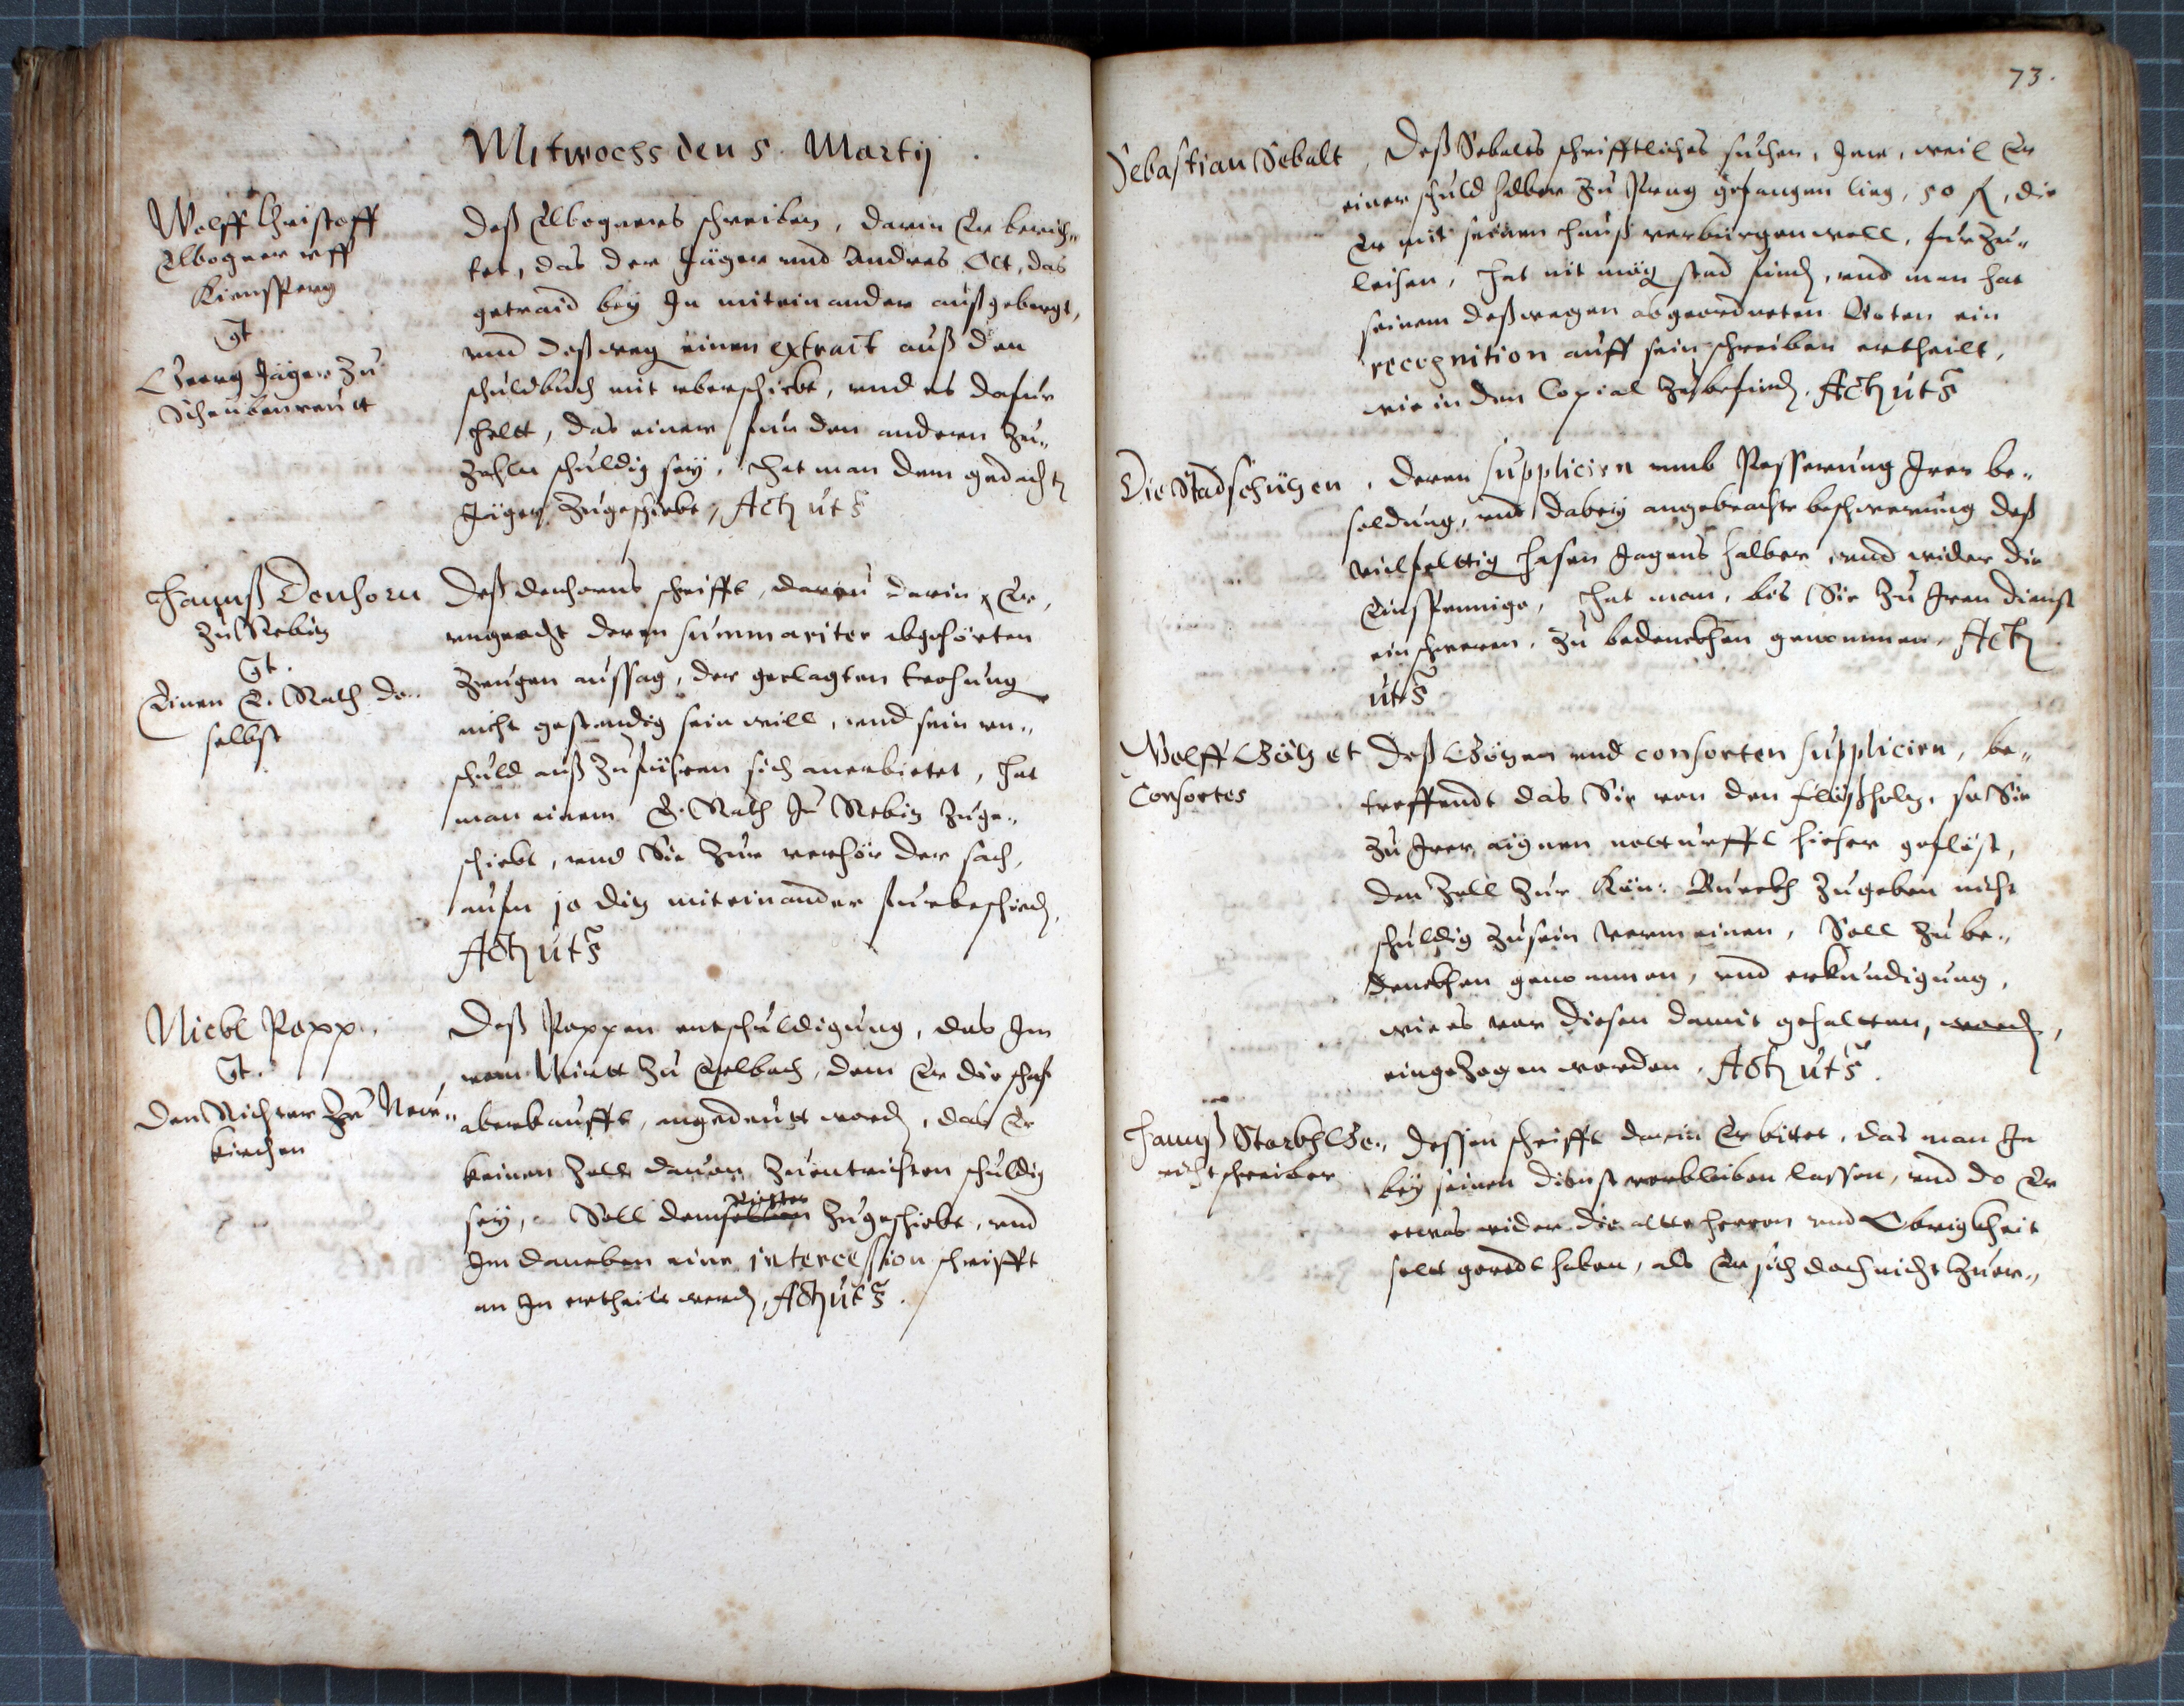 Mitwochs den 5. Martij.
Wolff Christoff
Elbogner uff
Kiensperg
Gt.
Georg Jäger zu
Scheubenreut
Deß Elbogners schreiben, darin Er berich„
tet, das der Jäger und Andres Ott, das
getraid bey Im miteinander außgeborgt,
und deßweg einen extract auß dem
schuldbuch mit uberschickt, und es dafur
helt, das einer fur den anderen zu„
zahln schuldig sey, hat man dem gedacht
Jäger zugeschickt, Act ut s
Hannß Denhorn
zu Rebitz
Gt.
Einen E. Rath do„
selbst
Deß Denhorns schrifft, darin Er,
ungeacht deren summariter abgehörten
Zeugen aussag, der geclagten trohung
nicht gestendig sein will, und sein un„
schuld auß zuführen sich anerbietet, hat
man einem E. Rath zu Rebitz zuge„
schickt, und Sie zur verhör der sach,
aufm 10 diß miteinander furbeschied,
Act ut s
Nickl Popp.
Gt.
Den Richter zu Neu„
kirchen
Deß Poppen entschuldigung, das Im
vom Wirtt zu Eselbach, dem Er die schaf
abverkaufft, angedeutt word, das Er
keinen Zoll davon zuentrichten schuldig
sey, Soll dem Richter zugeschickt, und
Im daneben eine intercession schrifft
an In ertheilt werd, Act ut s.
73.
Sebastian Sebalt
Deß Sebalts schrifftliches suchen, Ime, weil Er
einer schuld halber zu Prag gefangen lieg, 50 fl, die
Er mit seinem hauß verburgen woll, furzu„
leihen, hat nit mög stad find, und man hat
seinem deßwegen abgeordneten Boten ein
recognition auff sein schreiben ertheilt,
wie in dem Copial zubefind. Act ut s
Die Stadschützen
Deren supplicirn umb Besserung Irer be„
soldung, und dabey angebrachte beschwerung deß
vielfelttig hasen Jagens halber, und wider die
Einspennige, hat man, bis Sie zu Iren dienst
einschweren, zu bedenckhen genommen, Act
ut s
Wolff Götz et
Consortes
Deß Götzen und consorten supplicirn, be„
treffendt das Sie von den flößholz, so Sie
zu Irer aignen notturfft hieher geflöst,
den Zoll zur Kön: Burckh zugeben nicht
schuldig zusein vermeinen, Soll zu be„
denckhen genommen, und erkundigung,
wie es vor diesen damit gehaltten, word,
eingezogen werden, Act ut s.
Hannß Starckh Ge„
richtschreiber
Dessen schrifft darin Er bittet, das man In
bey seinen dienst verbleiben lassen, und do Er
etwas wider die altte herren und Obrigkheit
sollt geredt haben, als Er sich doch nicht zuer„